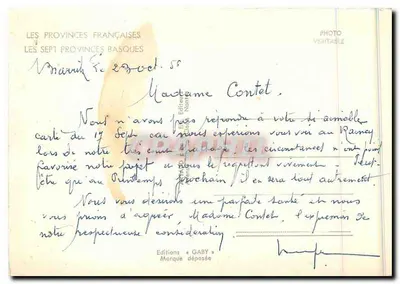 LES PROVINCES FRANÇAISES
PHOTO
VERITABLE
LES SEPT PROVINCES BASQUES
Biarritz le 2 oct. 55
Madame Contet.
Nous n'avons pas répondu à votre si aimable
carte du 17 Sept car nous espérions vous voir au Raincy
lors de notre très court passage. Les circonstances n'ont point
favorisé notre projet et nous le regrettons vivement. Peut-
être qu'au Printemps prochain il en sera tout autrement.
Nous vous désirons une parfaite santé et nous
vous prions d'agréer, Madame Contet, l'expression de
notre respectueuse considération
Editions « GABY »
Marque déposée